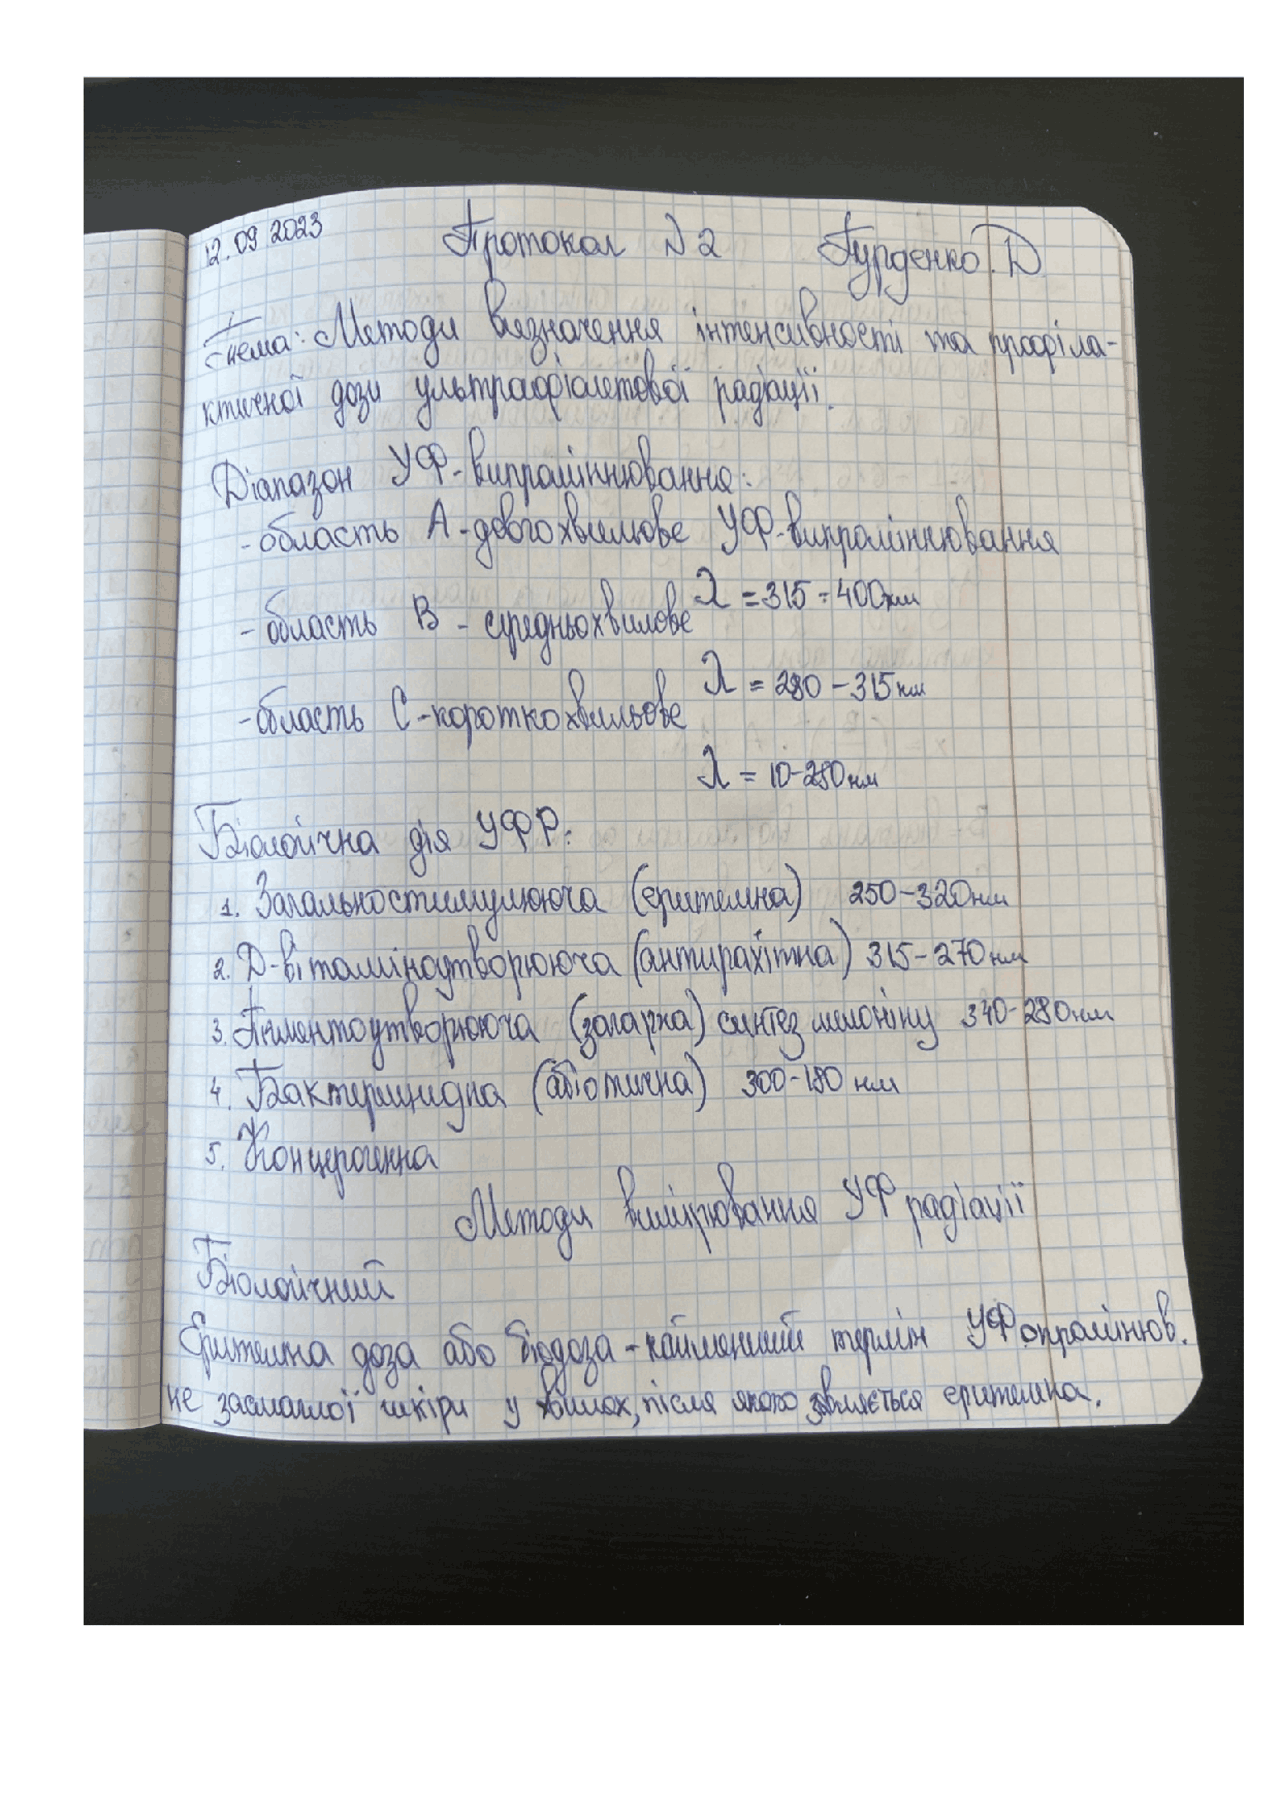 12.09 2023 Протокол №2 Гурденко.Д
Тема: Методи визначення інтенсивності та профіла-
ктичної дози ультрафіолетової радіації.
Діапазон УФ-випромінювання:
- область А - довгохвильове УФ-випромінювання
λ = 315 - 400 нм
- область В - середньохвилове
λ = 280 - 315 нм
- область С - короткохвильове
λ = 10-280 нм
Біологічна дія УФР:
1. Загальностимулююча (еритемна) 250-320 нм
2. Д-вітаміноутворююча (антирахітна) 315-270 нм
3. Пігментоутворююча (загарна) синтез 340-280 нм
4. Бактерицидна (абіотична) 300-180 нм
5. Канцерогенна
Методи вимірювання УФ радіації
Біологічний
Еритемна доза або біодоза - найменший термін УФ опромінюв.
не засмаглої шкіри у хвилах, після якого зявляється еритемна.